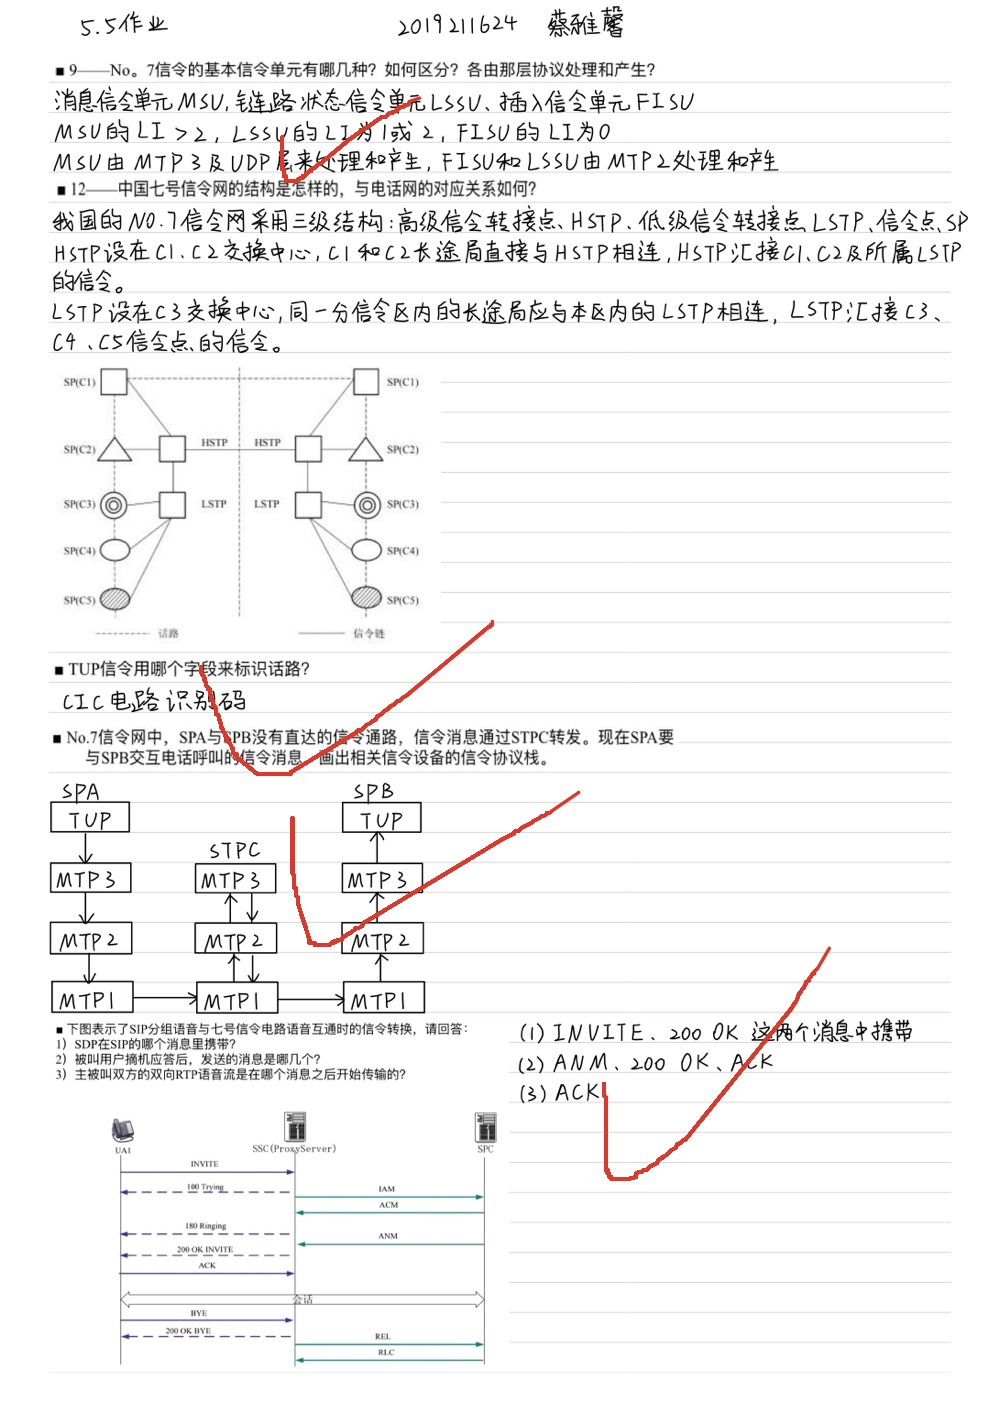 5.5作业 2019211624 蔡雅馨
■ 9——No。7信令的基本信令单元有哪几种？如何区分？各由那层协议处理和产生？
消息信令单元MSU,链路状态信令单元LSSU、插入信令单元FISU
MSU的LI>2, LSSU的LI为1或2, FISU的LI为0
MSU由MTP3及UDP层来处理和产生, FISU和LSSU由MTP2处理和产生
■ 12——中国七号信令网的结构是怎样的，与电话网的对应关系如何？
我国的NO.7信令网采用三级结构:高级信令转接点、HSTP、低级信令转接点LSTP、信令点、SP
HSTP设在C1、C2交换中心, C1和C2长途局直接与HSTP相连, HSTP汇接C1、C2及所属LSTP
的信令。
LSTP设在C3交换中心,同一分信令区内的长途局应与本区内的LSTP相连, LSTP汇接C3、
C4、C5信令点的信令。
SP(C1) SP(C1)
SP(C2) HSTP HSTP SP(C2)
SP(C3) LSTP LSTP SP(C3)
SP(C4) SP(C4)
SP(C5) SP(C5)
话路 信令链
■ TUP信令用哪个字段来标识话路？
CIC电路识别码
■ No.7信令网中，SPA与SPB没有直达的信令通路，信令消息通过STPC转发。现在SPA要
与SPB交互电话呼叫的信令消息，画出相关信令设备的信令协议栈。
SPA SPB
TUP TUP
STPC
MTP3 MTP3 MTP3
MTP2 MTP2 MTP2
MTP1 MTP1 MTP1
■ 下图表示了SIP分组语音与七号信令电路语音互通时的信令转换，请回答：
1）SDP在SIP的哪个消息里携带？
2）被叫用户摘机应答后，发送的消息是哪几个？
3）主被叫双方的双向RTP语音流是在哪个消息之后开始传输的？
(1) INVITE、200 OK 这两个消息中携带
(2) ANM、200 OK、ACK
(3) ACK
UA1 SSC(ProxyServer) SPC
INVITE
100 Trying
IAM
ACM
180 Ringing
ANM
200 OK INVITE
ACK
会话
BYE
200 OK BYE
REL
RLC